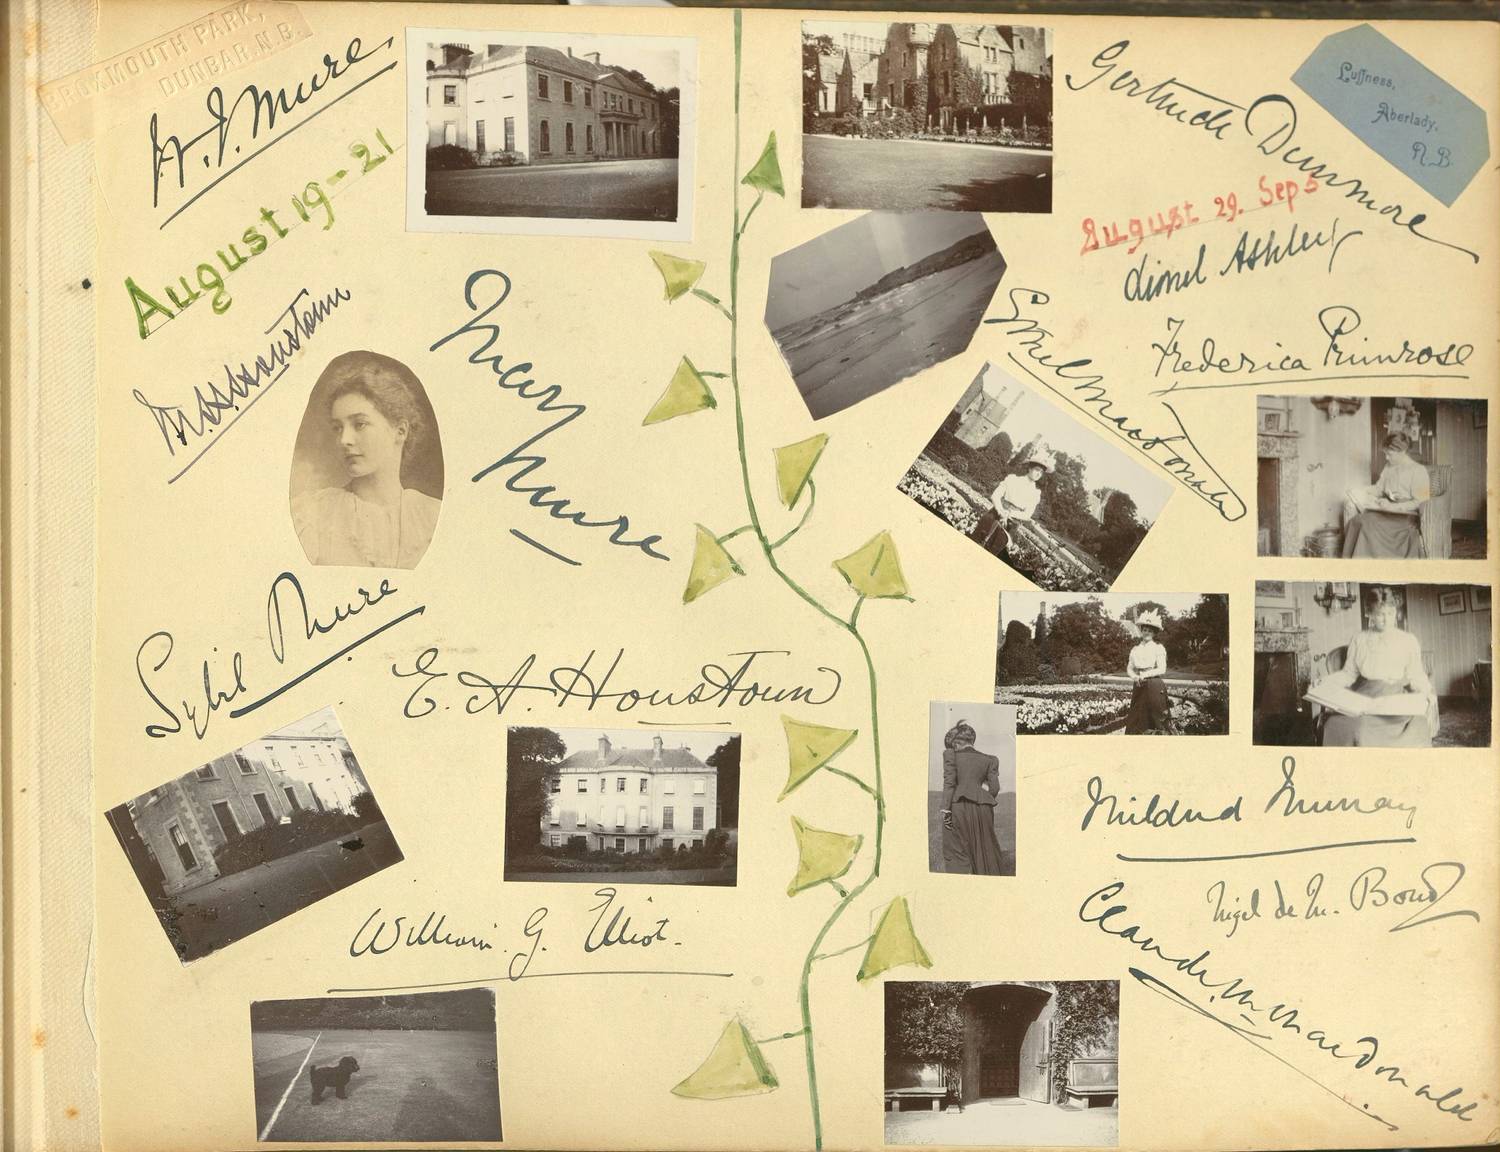 BROXMOUTH PARK,
DUNBAR, N.B.
W. J. Mure
August 19-21
Mary Mure
Sybil Mure
E. A. Houstoun
William. G. Elliot.
Gertrude Dunmore
Luffness,
Aberlady,
N.B.
August 29. Sep 5
Lionel Ashley
Frederica Primrose
Ethel Macdonald
Mildred Murray
Nigel de M. Bond
Claude. M. Macdonald